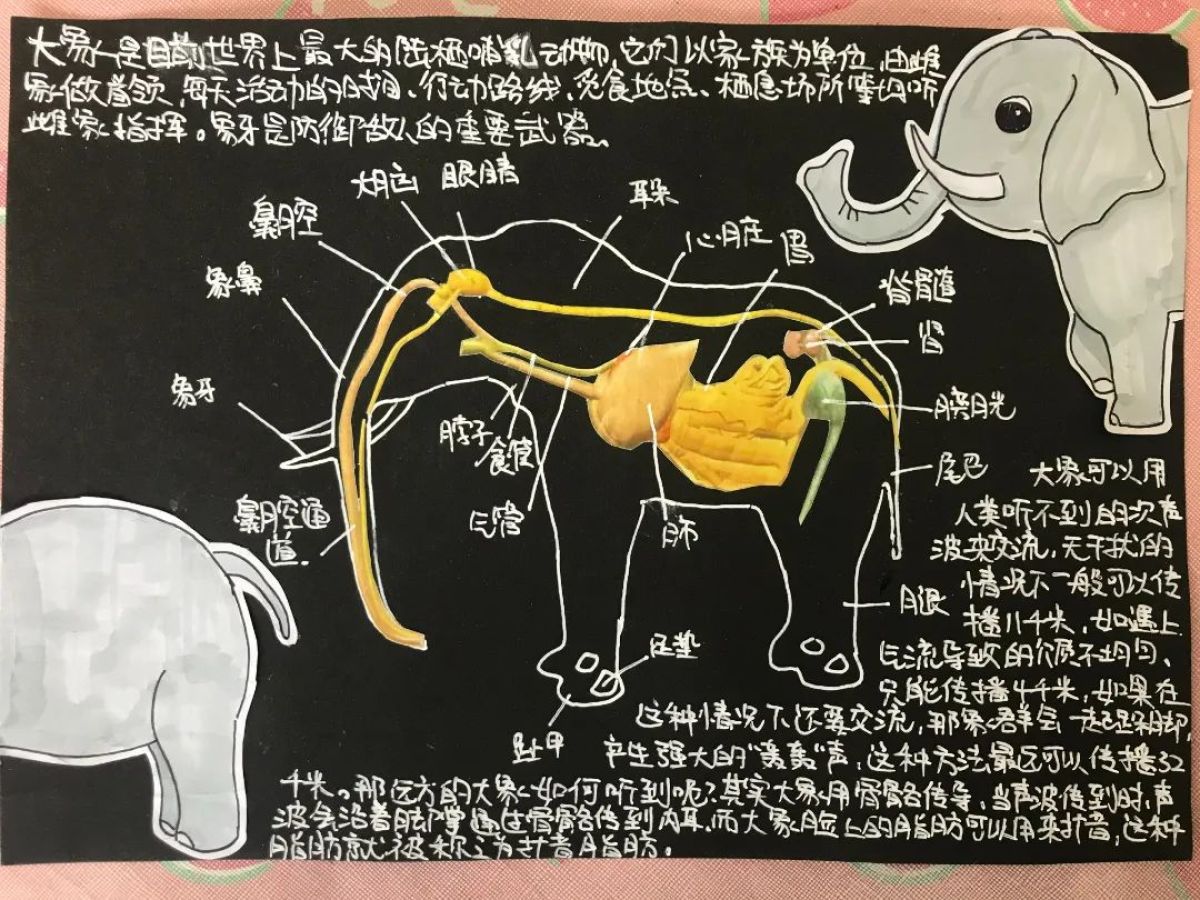 大象是目前世界上最大的陆栖哺乳动物,它们以家族为单位,由雌
象做首领,每天活动的时间、行动路线、觅食地点、栖息场所等均听
雌象指挥。象牙是防御敌人的重要武器。
大脑
眼睛
耳朵
鼻腔
心脏
胃
象鼻
脊髓
肾
象牙
膀胱
脖子
食管
尾巴
鼻腔通
道.
气管
肺
腿
足垫
趾甲
大象可以用
人类听不到的次声
波来交流,无干扰的
情况下一般可以传
播11千米,如遇上
气流导致的介质不均匀、
只能传播4千米,如果在
这种情况下还要交流,那象群会一起跺脚,
产生强大的“轰轰”声,这种方法最远可以传播32
千米。那远方的大象如何听到呢?其实大象用骨骼传导,当声波传到时,声
波会沿着脚掌通过骨骼传到内耳,而大象脸上的脂肪可以用来扩音,这种
脂肪就被称为扩音脂肪.